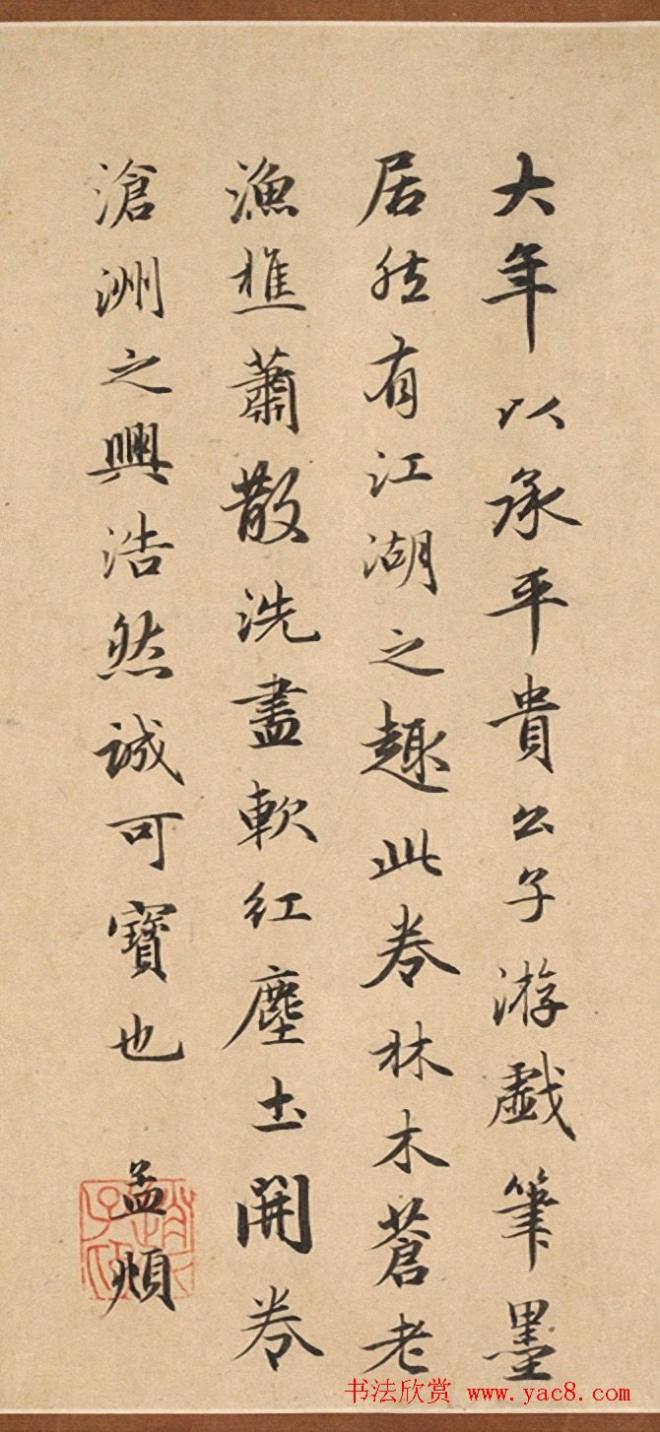 大年以承平貴公子游戲筆墨
居然有江湖之趣此卷林木蒼老
漁樵蕭散洗盡軟紅塵土開卷
滄洲之興浩然誠可寶也 孟頫
趙氏子昂
书法欣赏 www.yac8.com